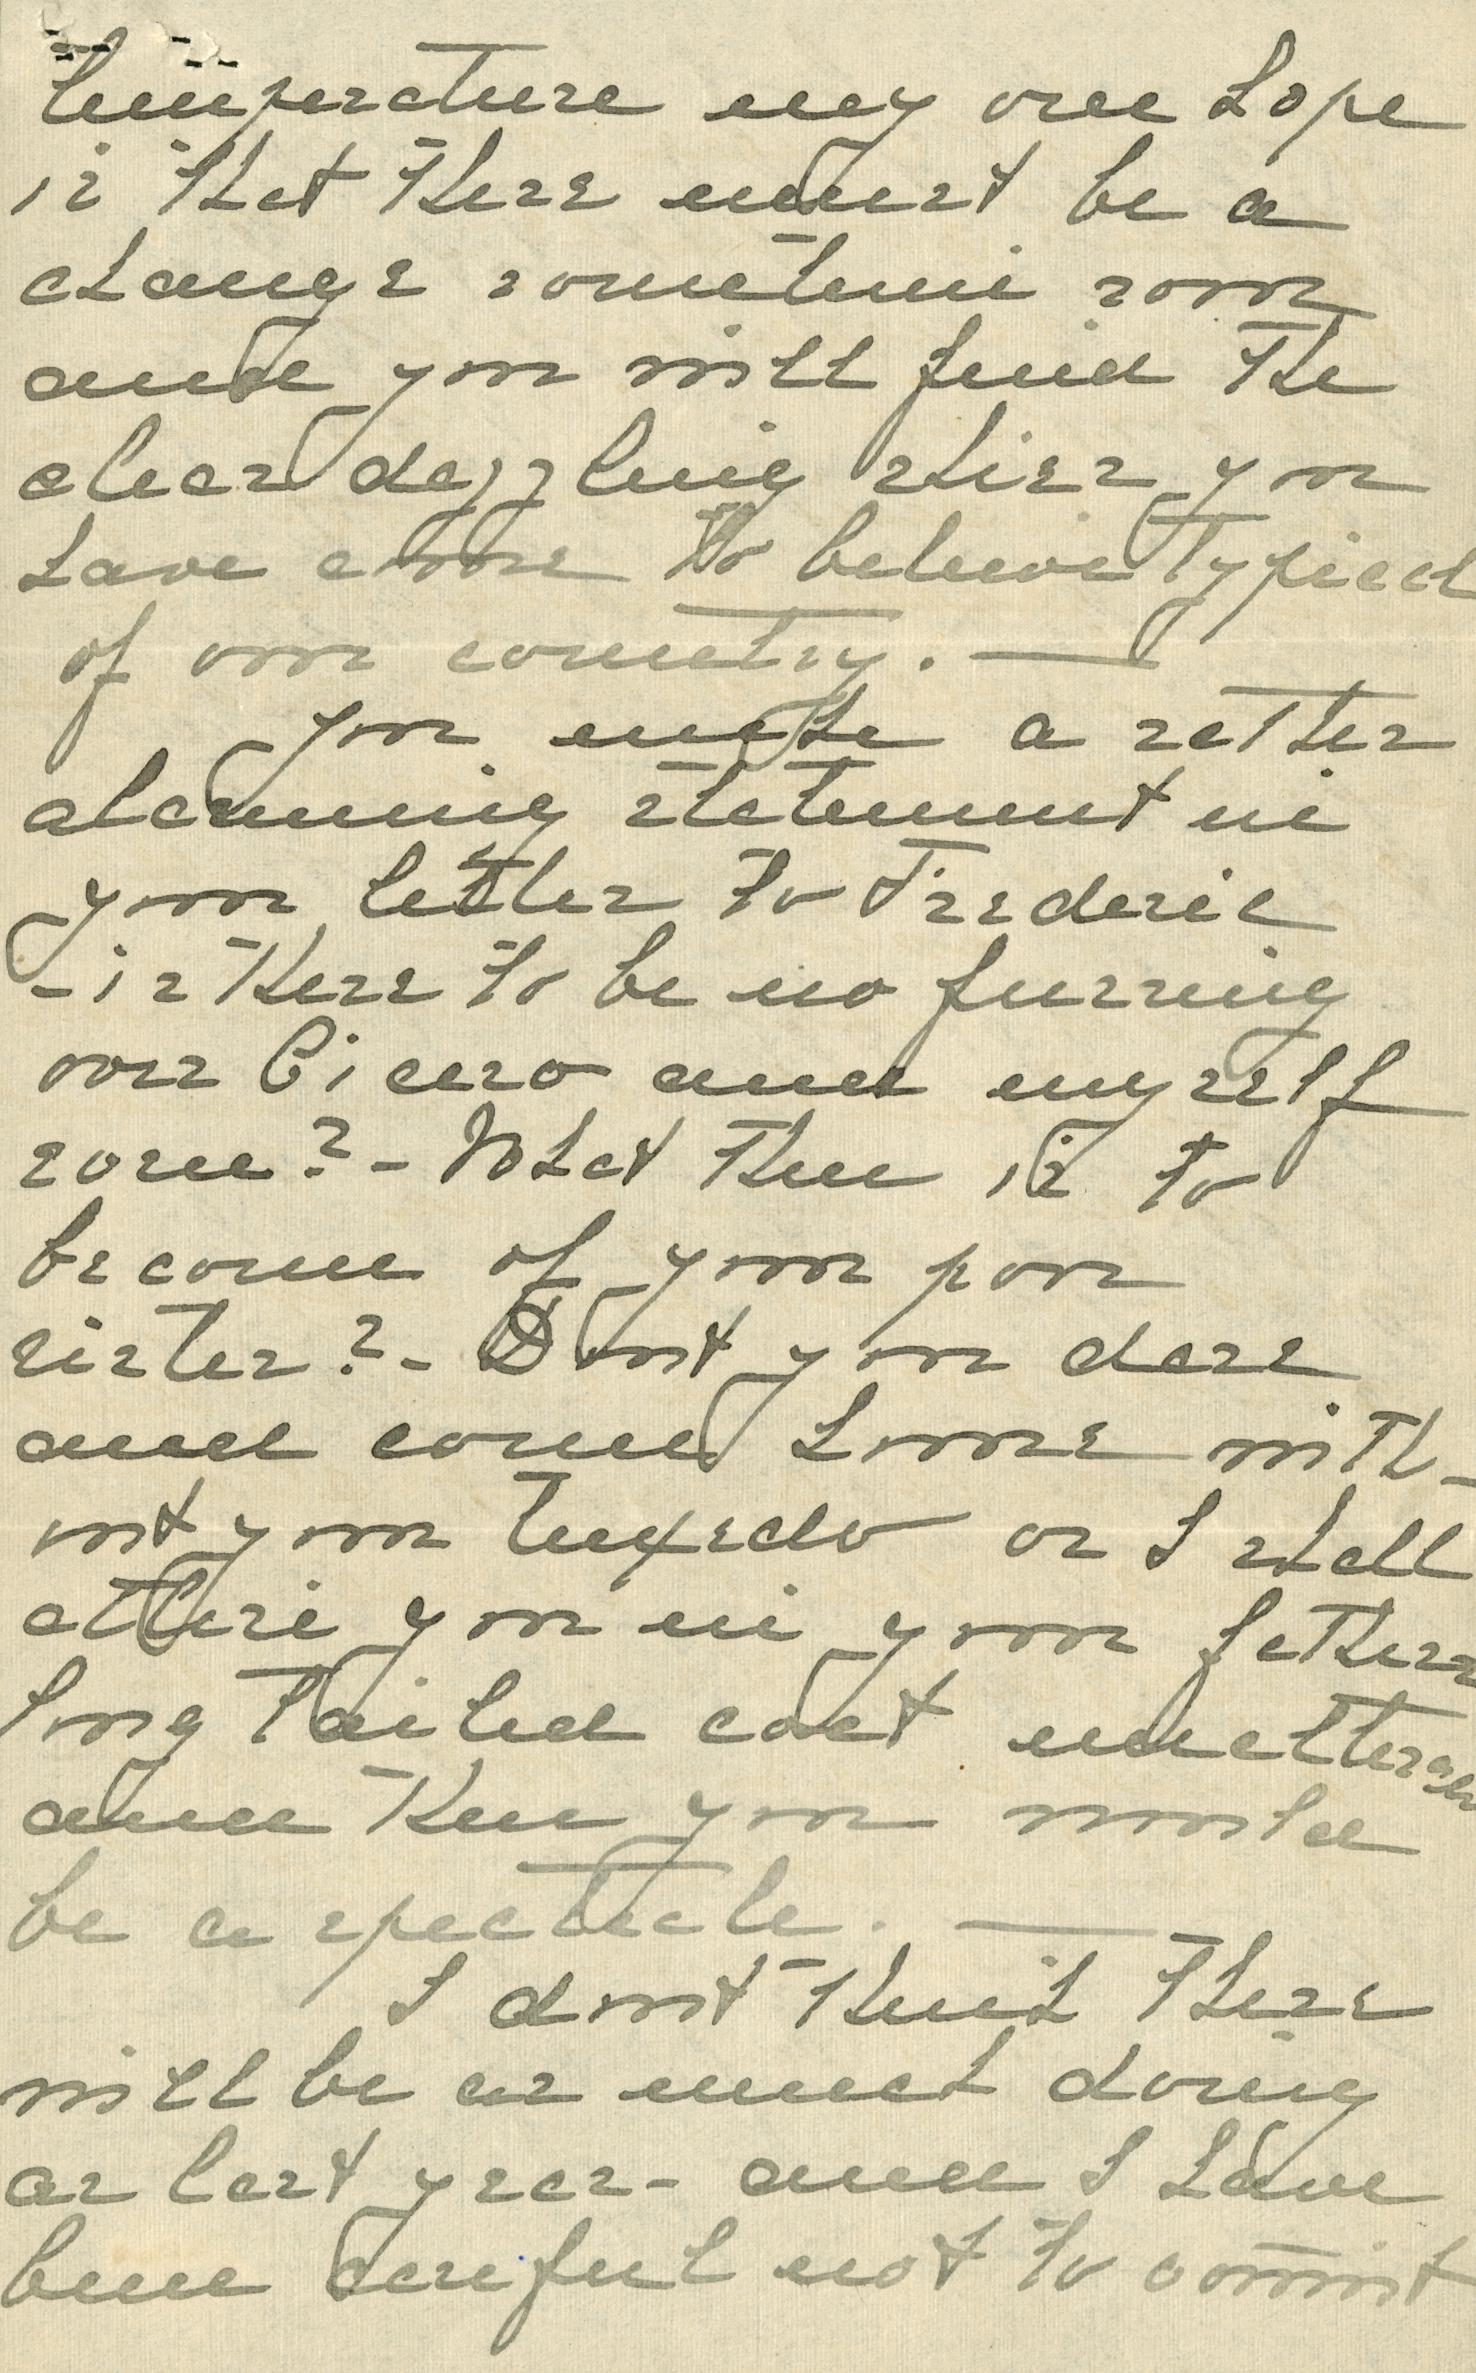 temperature my one hope
is that there must be a
change sometime soon
and you will find the
clear dazzling skies you
have come to believe typical
of our country. —
You make a rather
alarming statement in
your letter to Frederic
- is there to be no furring
over Cicero and myself
soon? - What then is to
become of your poor
sister? - Dont you dare
and come home with-
out your tuxedo or I shall
attire you in your fathers
long tailed coat
and then you would
be a spectacle. —
I dont think there
will be as much doing
as last year - and I have
been careful not to commit